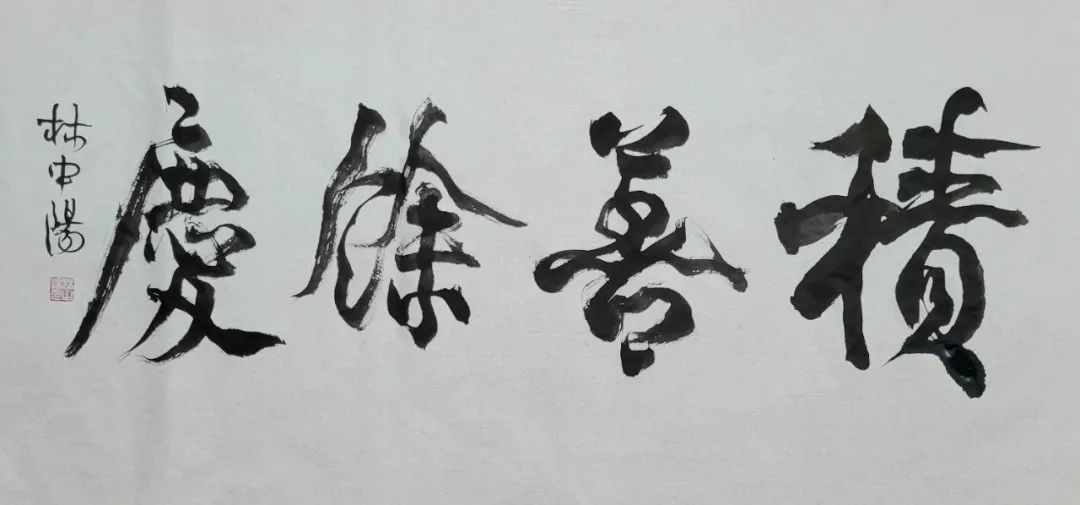 積善餘慶
林中陽